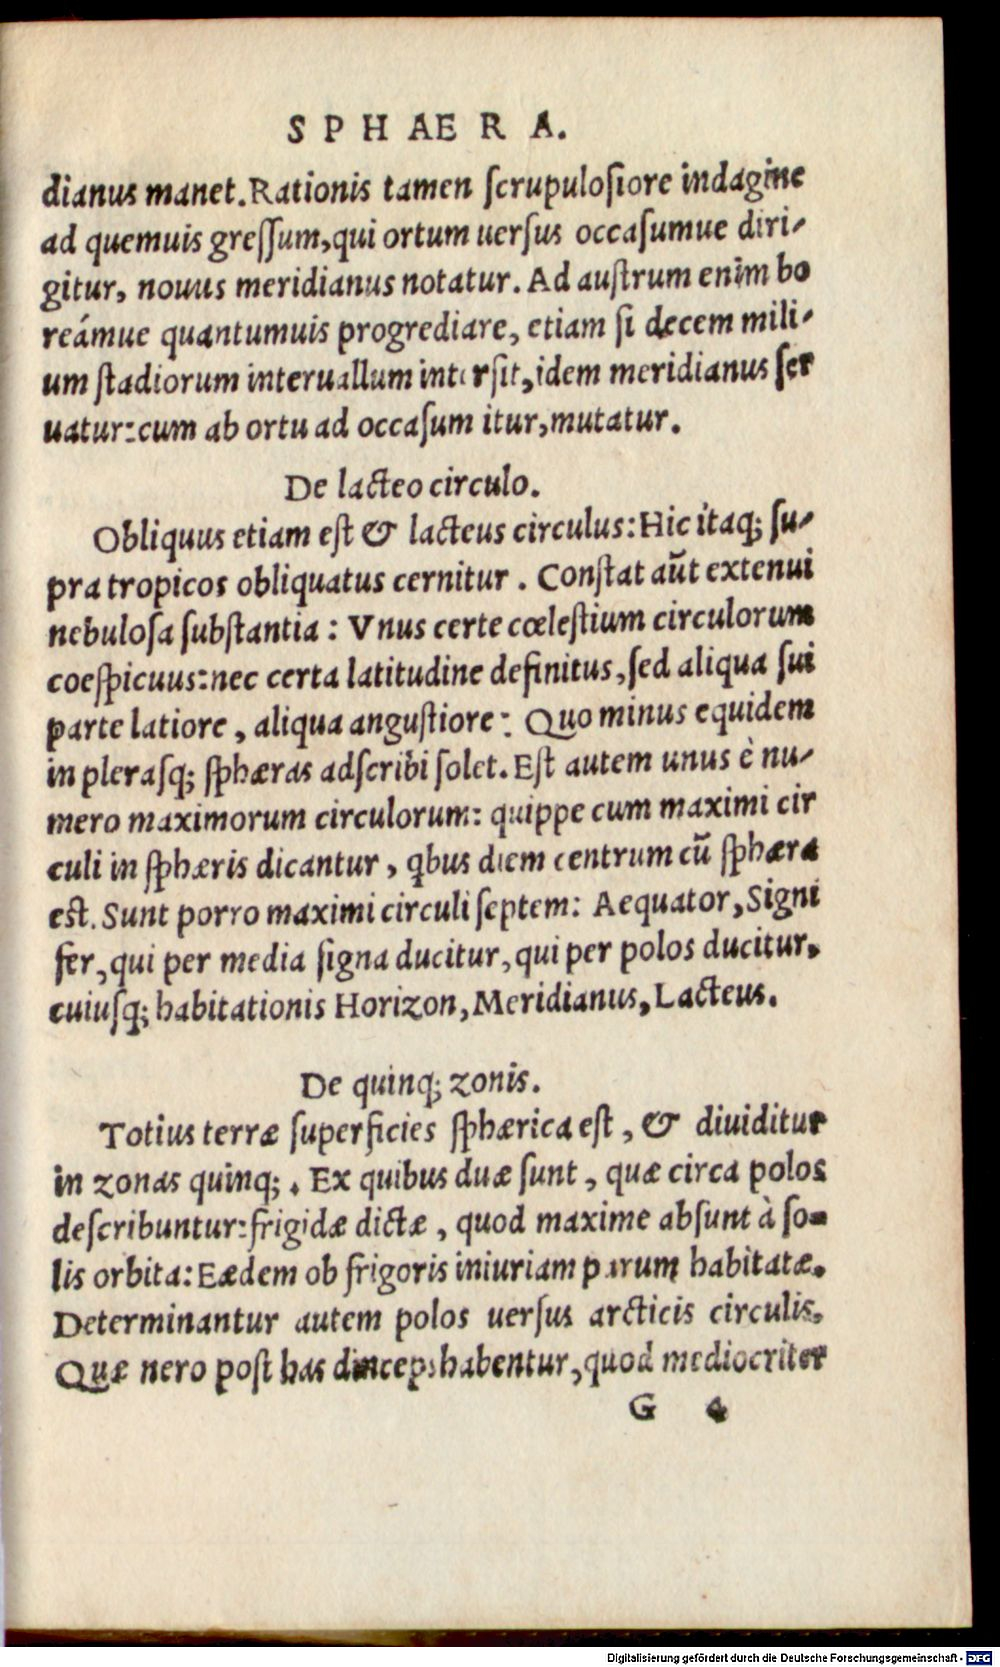 S P H AE R A.
dianus manet. Rationis tamen ſcrupuloſiore indagine
ad quemuis greſſum, qui ortum uerſus occaſumue diri-
gitur, nouus meridianus notatur. Ad auſtrum enim bo
reámue quantumuis progrediare, etiam ſi decem mili-
um ſtadiorum interuallum interſit, idem meridianus ſer
uatur: cum ab ortu ad occaſum itur, mutatur.
De lacteo circulo.
Obliquus etiam eſt & lacteus circulus: Hic itaq; ſu-
pra tropicos obliquatus cernitur. Conſtat aūt extenui
nebuloſa ſubſtantia: Vnus certe cœleſtium circulorum
coeſpicuus: nec certa latitudine definitus, ſed aliqua ſui
parte latiore, aliqua anguſtiore: Quo minus equidem
in pleraſq; ſphæras adſcribi ſolet. Eſt autem unus è nu-
mero maximorum circulorum: quippe cum maximi cir
culi in ſphæris dicantur, qbus diem centrum cū ſphæra
eſt. Sunt porro maximi circuli ſeptem: Aequator, Signi
fer, qui per media ſigna ducitur, qui per polos ducitur,
cuiuſq; habitationis Horizon, Meridianus, Lacteus.
De quinq; zonis.
Totius terræ ſuperficies ſphærica eſt, & diuiditur
in zonas quinq;. Ex quibus duæ ſunt, quæ circa polos
deſcribuntur: frigidæ dictæ, quod maxime abſunt à ſo-
lis orbita: Eædem ob frigoris iniuriam parum habitatæ.
Determinantur autem polos uerſus arcticis circulis.
Quæ nero poſt has dinceps habentur, quod mediocriter
G 4
Digitalisierung gefördert durch die Deutsche Forschungsgemeinschaft - DFG